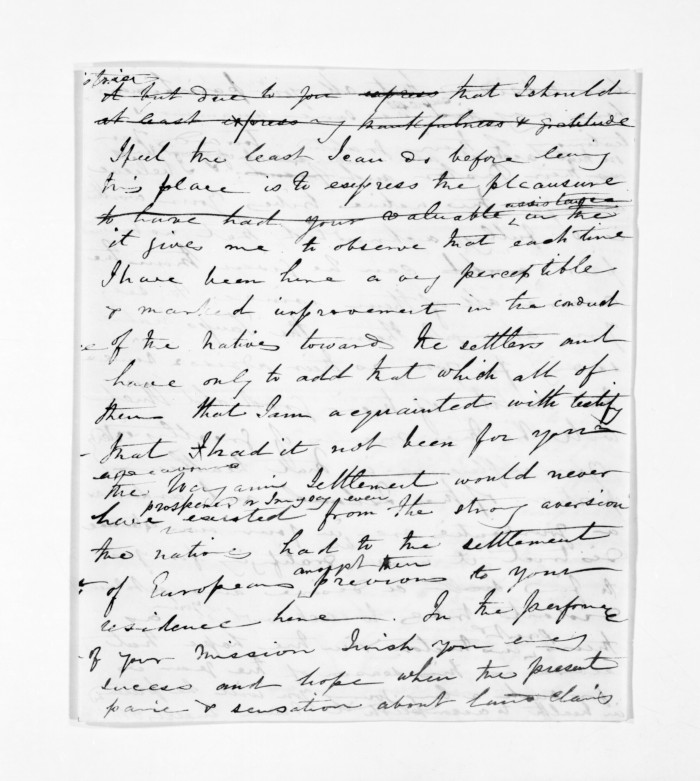 it but due to you express that I should
at least express my thankfulness & gratitude
I feel the least I can do before leving
this place is to express the pleausure
assistance
to have had your valuable in the
it gives me to observe that each time
I have been here a very perceptible
& marked improvement in the conduct
of the natives towards the settlers and
have only to add that which all of
them that I am acquainted with testify
that I had it not been for your
the Settlement would never
prospered or I may even
have existed from the strong aversion
the natives had to the settlement
amongst them
of Europeans previous to your
residence here. In the performce
of your Mission I wish you every
success and hope when the present
panic & sensation about land claims